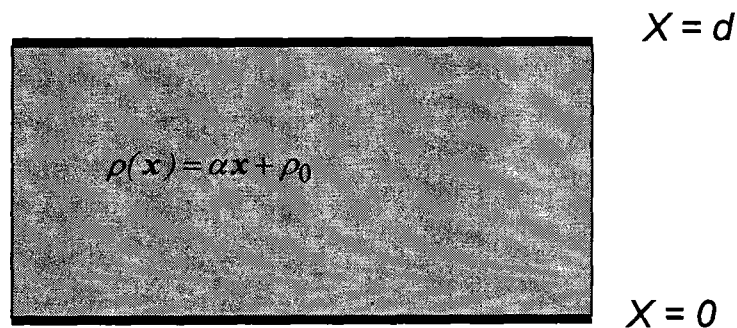 X = d
ρ(x)=αx+ρ₀
X = 0